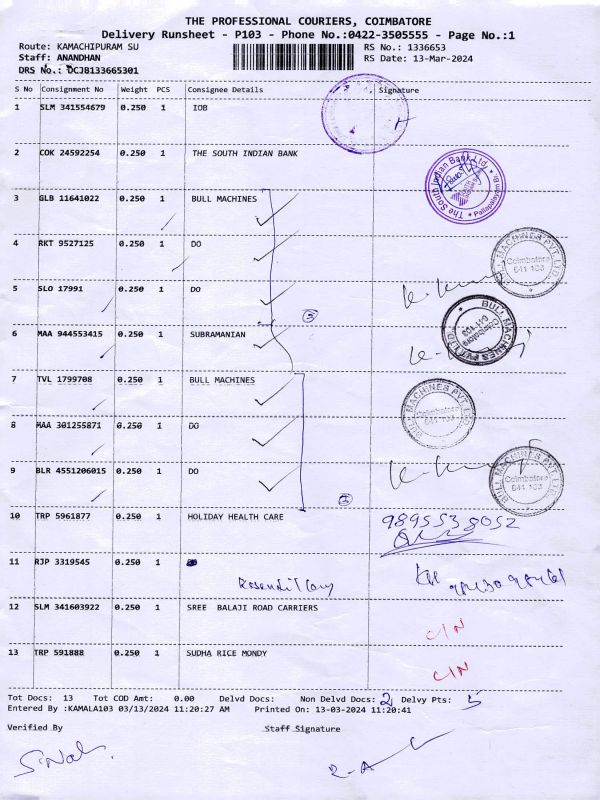 THE PROFESSIONAL COURIERS, COIMBATORE
Delivery Runsheet - P103 - Phone No.:0422-3505555 - Page No.:1
Route: KAMACHIPURAM SU RS No.: 1336653
Staff: ANANDHAN RS Date: 13-Mar-2024
DRS No.: DCJB133665301
S No Consignment No Weight PCS Consignee Details Signature
1 SLM 341554679 0.250 1 IOB
2 COK 24592254 0.250 1 THE SOUTH INDIAN BANK
The South Indian Bank Ltd. Pallapalayam Br.
3 GLB 11641022 0.250 1 BULL MACHINES
4 RKT 9527125 0.250 1 DO
BULL MACHINES PVT LTD Coimbatore 641 103
5 SLO 17991 0.250 1 DO
BULL MACHINES PVT LTD. Coimbatore 641 103
6 MAA 944553415 0.250 1 SUBRAMANIAN
7 TVL 1799708 0.250 1 BULL MACHINES
BULL MACHINES PVT LTD. Coimbatore 641 103
8 MAA 301255871 0.250 1 DO
9 BLR 4551206015 0.250 1 DO
BULL MACHINES PVT LTD. Coimbatore 641 103
10 TRP 5961877 0.250 1 HOLIDAY HEALTH CARE
9895538052
11 RJP 3319545 0.250 1
12 SLM 341603922 0.250 1 SREE BALAJI ROAD CARRIERS
C/N
13 TRP 591888 0.250 1 SUDHA RICE MONDY
C/N
Tot Docs: 13 Tot COD Amt: 0.00 Delvd Docs: Non Delvd Docs: 2 Delvy Pts: 5
Entered By :KAMALA103 03/13/2024 11:20:27 AM Printed On: 13-03-2024 11:20:41
Verified By Staff Signature